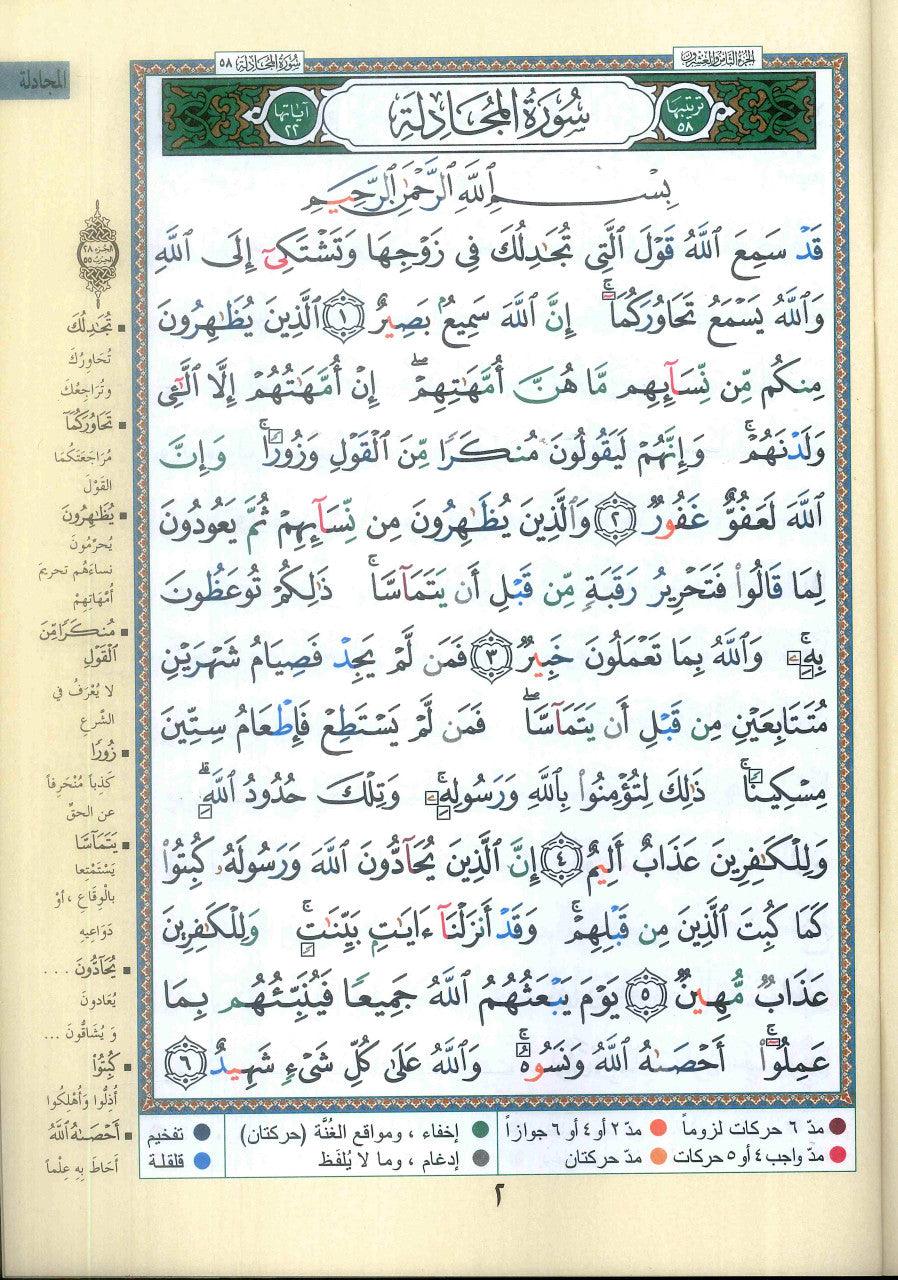 الجزء الثامن والعشرون
سورة المجادلة ٥٨
المجادلة
ترتيبها ٥٨
سُورَةُ الْمُجَادِلَة
آياتها ٢٢
بِسْمِ ٱللَّهِ ٱلرَّحْمَٰنِ ٱلرَّحِيمِ
قَدْ سَمِعَ ٱللَّهُ قَوْلَ ٱلَّتِي تُجَٰدِلُكَ فِي زَوْجِهَا وَتَشْتَكِيٓ إِلَى ٱللَّهِ
وَٱللَّهُ يَسْمَعُ تَحَاوُرَكُمَآۚ إِنَّ ٱللَّهَ سَمِيعٌۢ بَصِيرٌ ١ ٱلَّذِينَ يُظَٰهِرُونَ
مِنكُم مِّن نِّسَآئِهِم مَّا هُنَّ أُمَّهَٰتِهِمْۖ إِنْ أُمَّهَٰتُهُمْ إِلَّا ٱلَّٰٓـِٔي
وَلَدْنَهُمْۚ وَإِنَّهُمْ لَيَقُولُونَ مُنكَرًا مِّنَ ٱلْقَوْلِ وَزُورًاۚ وَإِنَّ
ٱللَّهَ لَعَفُوٌّ غَفُورٌ ٢ وَٱلَّذِينَ يُظَٰهِرُونَ مِن نِّسَآئِهِمْ ثُمَّ يَعُودُونَ
لِمَا قَالُوا۟ فَتَحْرِيرُ رَقَبَةٍ مِّن قَبْلِ أَن يَتَمَآسَّاۚ ذَٰلِكُمْ تُوعَظُونَ
بِهِۦۚ وَٱللَّهُ بِمَا تَعْمَلُونَ خَبِيرٌ ٣ فَمَن لَّمْ يَجِدْ فَصِيَامُ شَهْرَيْنِ
مُتَتَابِعَيْنِ مِن قَبْلِ أَن يَتَمَآسَّاۖ فَمَن لَّمْ يَسْتَطِعْ فَإِطْعَامُ سِتِّينَ
مِسْكِينًاۚ ذَٰلِكَ لِتُؤْمِنُوا۟ بِٱللَّهِ وَرَسُولِهِۦۚ وَتِلْكَ حُدُودُ ٱللَّهِۗ
وَلِلْكَٰفِرِينَ عَذَابٌ أَلِيمٌ ٤ إِنَّ ٱلَّذِينَ يُحَآدُّونَ ٱللَّهَ وَرَسُولَهُۥ كُبِتُوا۟
كَمَا كُبِتَ ٱلَّذِينَ مِن قَبْلِهِمْۚ وَقَدْ أَنزَلْنَآ ءَايَٰتٍۭ بَيِّنَٰتٍۚ وَلِلْكَٰفِرِينَ
عَذَابٌ مُّهِينٌ ٥ يَوْمَ يَبْعَثُهُمُ ٱللَّهُ جَمِيعًا فَيُنَبِّئُهُم بِمَا
عَمِلُوٓا۟ۚ أَحْصَىٰهُ ٱللَّهُ وَنَسُوهُۚ وَٱللَّهُ عَلَىٰ كُلِّ شَيْءٍ شَهِيدٌ ٦
الجزء ٢٨
الحزب ٥٥
تُجَٰدِلُكَ
تُحَاوِرُكَ
وتُراجِعُكَ
تَحَاوُرَكُمَآ
مُرَاجَعَتَكُمَا
القَوْلَ
يُظَٰهِرُونَ
يُحرِّمُونَ
نساءَهُم تحريمَ
أُمَّهَاتِهِمْ
مُنكَرًا مِّنَ
ٱلْقَوْلِ
لا يُعْرَفُ في
الشَّرعِ
زُورًا
كَذِباً مُنْحَرِفاً
عن الحقِّ
يَتَمَآسَّا
يَسْتَمْتِعا
بالْوِقَاعِ ، أوْ
دَوَاعِيهِ
يُحَآدُّونَ ...
يُعَادونَ
وَ يُشَاقُّونَ ...
كُبِتُوا۟
أُذِلُّوا وَأُهْلِكُوا
أَحْصَىٰهُ ٱللَّهُ
أَحَاطَ بِهِ عِلْماً
مدّ ٦ حركات لزوماً
مدّ ٢ أو ٤ أو ٦ جوازاً
إخفاء ، ومواقع الغُنَّة (حركتان)
تفخيم
مدّ واجب ٤ أو ٥ حركات
مدّ حركتان
إدغام ، وما لا يُلفَظ
قلقلة
٢